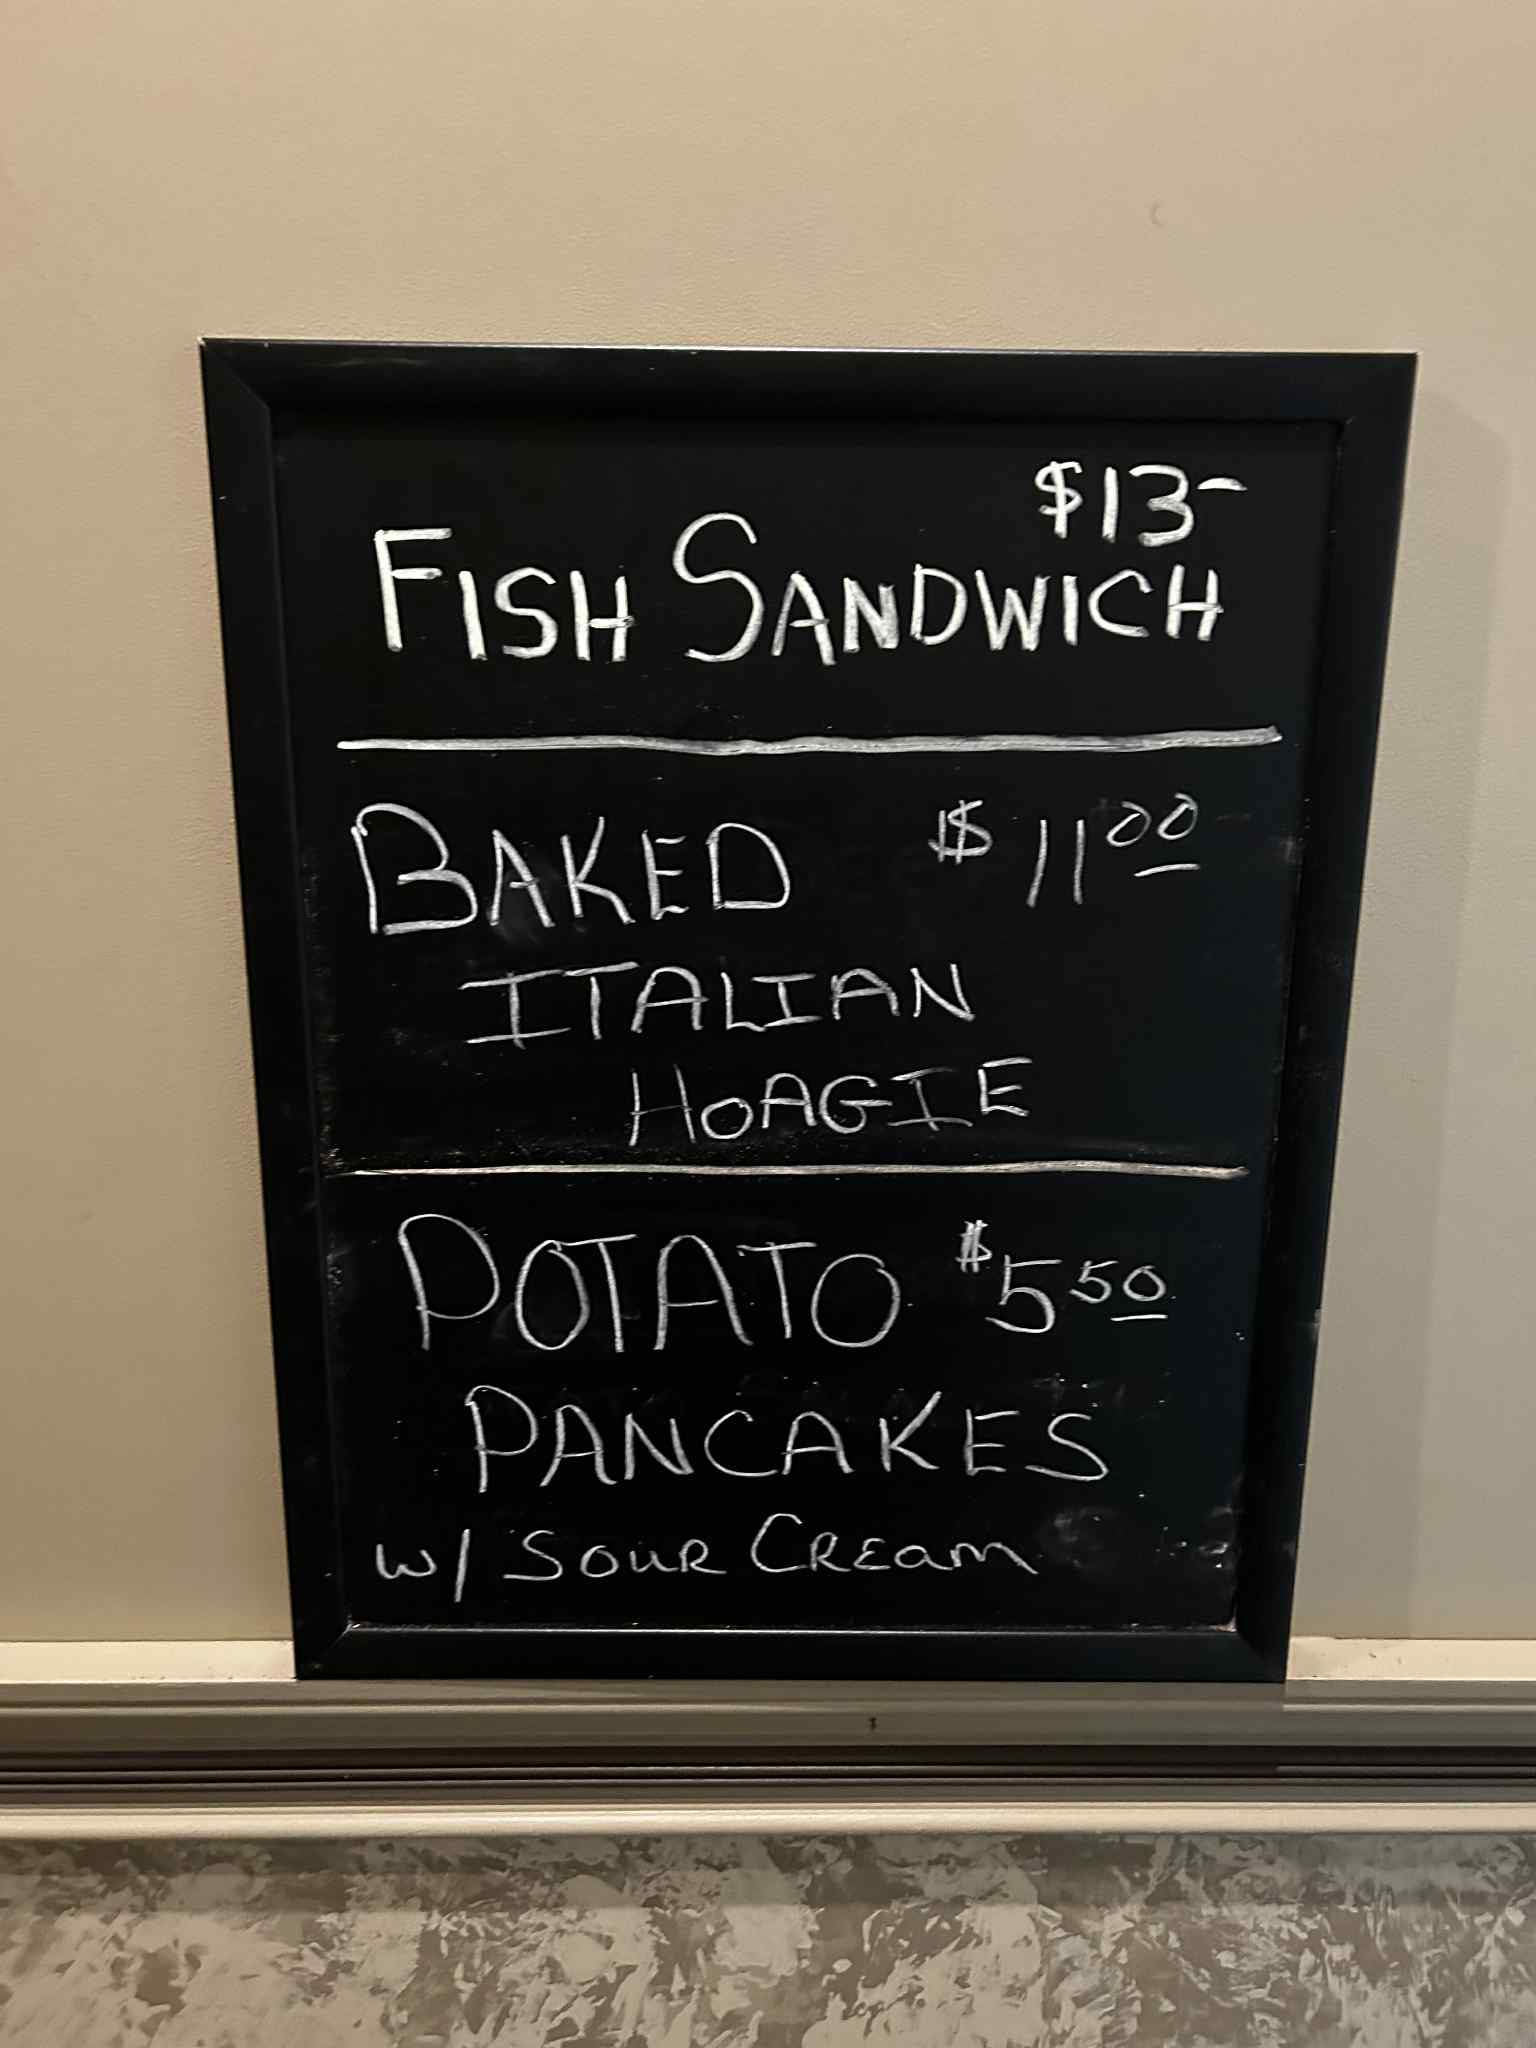 $13-
FISH SANDWICH
BAKED $11 00
ITALIAN
HOAGIE
POTATO $5 50
PANCAKES
W/ SOUR CREAM